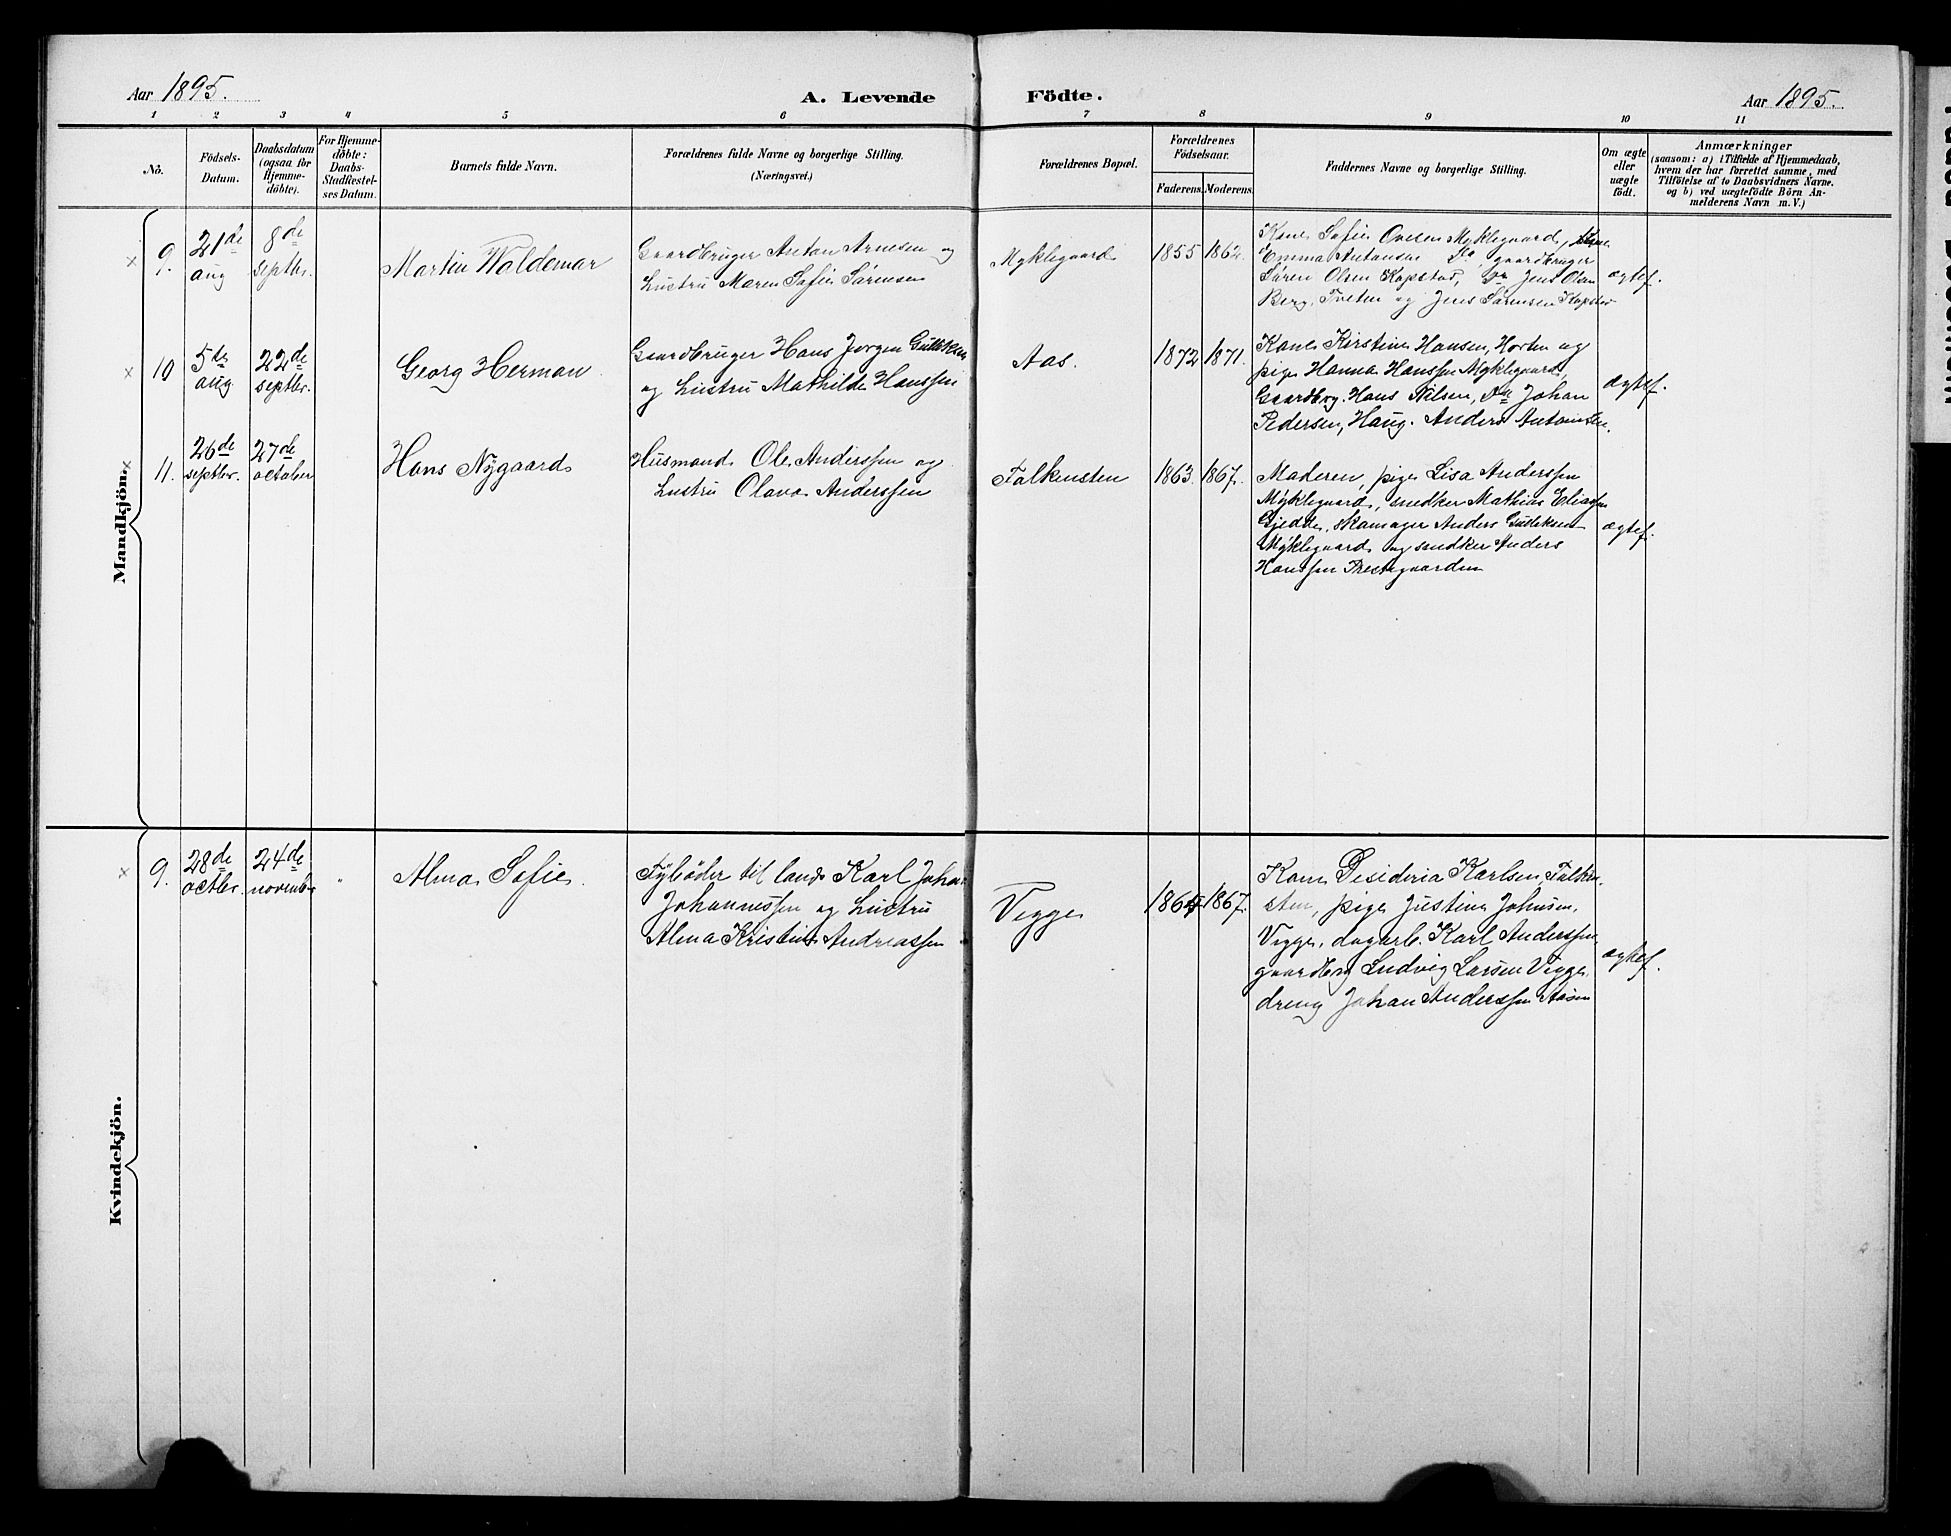 Aar 1895.
A. Levende Födte.
Aar 1895.
1 2 3 4 5 6 7 8 9 10 11
No.
Födsels-
Datum.
Daabsdatum
(ogsaa for
Hjemme-
döbte).
For Hjemme-
döbte:
Daabs-
Stadfæstel-
ses Datum.
Barnets fulde Navn.
Forældrenes fulde Navne og borgerlige Stilling.
(Næringsvei.)
Forældrenes Bopæl.
Forældrenes
Födselsaar.
Faderens. Moderens.
Faddernes Navne og borgerlige Stilling.
Om ægte
eller
uægte
födt.
Anmærkninger
(saasom: a) i Tilfælde af Hjemmedaab,
hvem der har forrettet samme, med
Tilföielse af to Daabsvidners Navne.
og b) ved uægtefödte Börn An-
melderens Navn m. V.)
Mandkjön.
9.
21de
aug
8de
septbr.
Martin Waldemar
Gaardbruger Anton Arnesen og
Hustru Maren Sofie Sørensen
Myklegaard
1855 1862.
Kone Sofie Ovesen Myklegaard,
Emma Antonsen Do, gaardbruger
Søren Olsen Kopstad, Do Jens Olsen
Berg, Tveten og Jens Sørensen Kopstad
ægtef.
10
5te
aug
22de
septbr.
Georg Herman
Gaardbruger Hans Jørgen Gulleksen
og Hustru Mathilde Hanssen
Aas.
1872 1871.
Kone Kirstine Hansen, Horten og
pige Hanna Hanssen Myklegaard,
Gaardbrg. Hans Nilsen, Do Johan
Pedersen, Haug. Anders Antonisen.
ægtef.
11.
26de
septbr.
27de
october
Hans Nygaard
Husmand Ole Anderssen og
Hustru Olava Anderssen
Falkensten
1863. 1867.
Moderen, pige Lisa Anderssen
Myklegaard, snedker Mathias Eliasen
Gjedde, skomager Anders Gulleksen
Myklegaard og snedker Anders
Hanssen Prestegaarden
ægtef.
Kvindekjön.
9.
28de
octbr.
24de
novembr
"
Alma Sofie.
Fyrbøder til lands Karl Johan
Johannessen og Hustru
Alma Kristine Andreassen
Vegge
1867.
Kone Desideria Karlsen Falken-
sten, pige Justine Johnsen,
Vegge, dagarb. Karl Anderssen
gaardbrg Ludvig Larsen Vegge
dreng Johan Anderssen Aasen
ægtef.